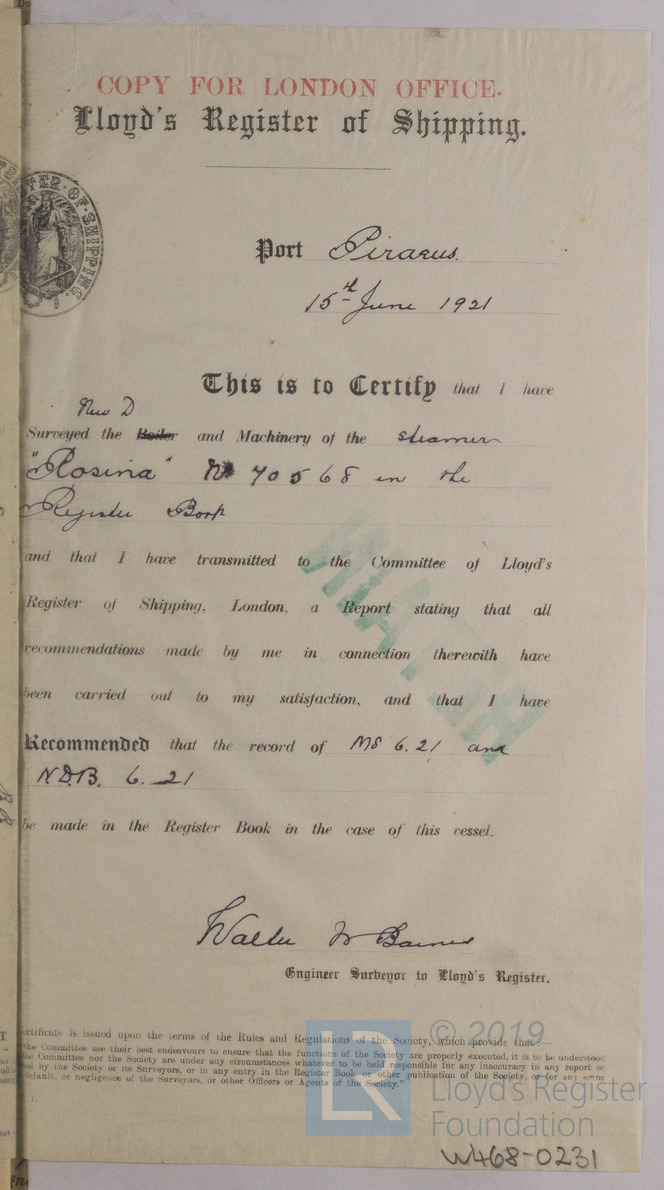 COPY FOR LONDON OFFICE.
Lloyd's Register of Shipping.
Port Piraeus.
15th June 1921
This is to Certify that I have
New D
Surveyed the Boiler and Machinery of the steamer
"Rosina" No 70568 in the
Register Book
and that I have transmitted to the Committee of Lloyd's
Register of Shipping, London, a Report stating that all
recommendations made by me in connection therewith have
been carried out to my satisfaction, and that I have
Recommended that the record of MS 6.21 and
N.D.B. 6.21
be made in the Register Book in the case of this vessel.
Walter W Barnes
Engineer Surveyor to Lloyd's Register.
ertificate is issued upon the terms of the Rules and Regulations of the Society, which provide that:—
the Committee use their best endeavours to ensure that the functions of the Society are properly executed, it is to be understood
he Committee nor the Society are under any circumstances whatever to be held responsible for any inaccuracy in any report or
ed by the Society or its Surveyors, or in any entry in the Register Book or other publication of the Society, or for any error
default, or negligence of the Surveyors, or other Officers or Agents of the Society."
LR
© 2019
Lloyd's Register
Foundation
W468-0231